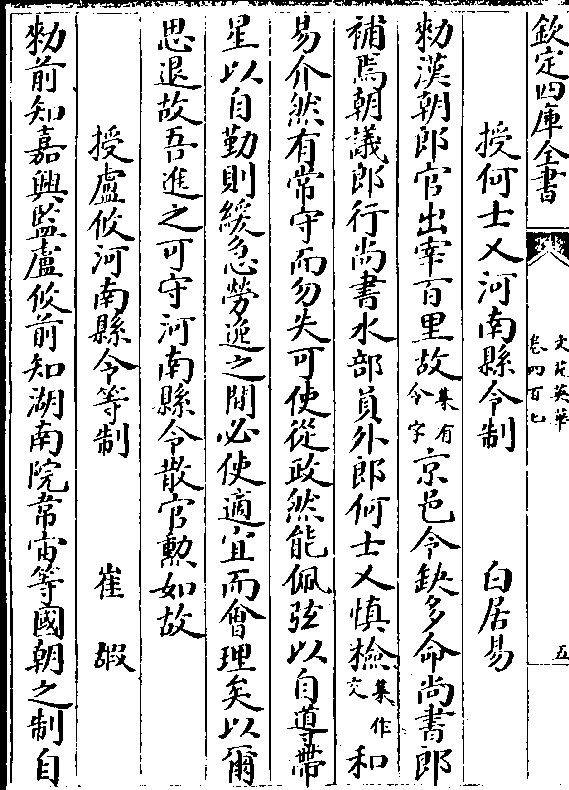 欽定四庫全書
文苑英華
卷四百七
五
授何士乂河南縣令制 白居易
勑漢朝郎官出宰百里故集有令字京邑令缺多命尚書郎
補焉朝議郎行尚書水部員外郎何士乂慎檢集作交和
易介然有常守而勿失可使從政然能佩弦以自導帶
星以自勤則緩急勞逸之間必使適宜而會理矣以爾
思退故吾進之可守河南縣令散官勲如故
授盧攸河南縣令等制 崔嘏
勑前知嘉興監盧攸前知湖南院韋宙等國朝之制自